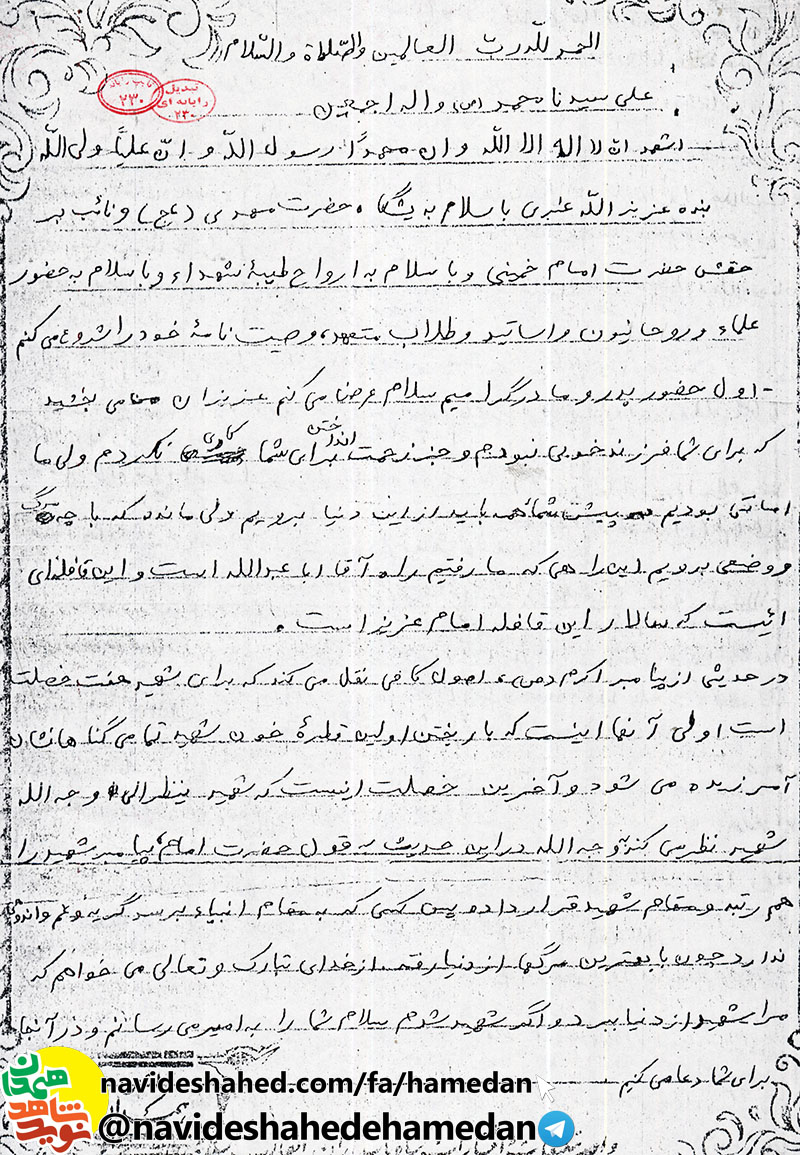 الحمد للّه رب العالمین والصّلاة والسّلام
علی سیدنا محمد (ص) واله اجمعین
تایپ رایانه
۲۳۰
تبدیل
رایانه ای
۲۳۰
اشهد ان لا اله الا اللّه وان محمدًا رسول اللّه و انّ علیًا ولی اللّه
بنده عزیز اللّه عنبری با سلام به پیشگاه حضرت مهدی (عج) و نائب بر
حقش حضرت امام خمینی و با سلام به ارواح طیبهٔ شهداء و با سلام به حضور
علماء و روحانیون و اساتید و طلاب متعهد، وصیت نامهٔ خود را شروع می کنم
- اول حضور پدر و مادر گرامیم سلام عرض می کنم عزیزان من می بخشید
که برای شما فرزند خوبی نبودم و جز زحمت انداختن برای شما کاری نکردم ولی ما
امانتی بودیم پیش شما باید از این دنیا برویم ولی مانده که با چه مرگ
و وضعی برویم این راهی که ما رفتیم راه آقا ابا عبدالله است و این قافله‌ای
ائیست که سالار این قافله امام عزیز است.
در حدیثی از پیامبر اکرم (ص)، اصول کافی نقل می کند که برای شهید هفت خصلت
است اولی آنها اینست که با ریختن اولین قطرهٔ خون شهید تمامی گناهانشان
آمرزیده می شود و آخرین خصلت اینست که شهید ینظر الی وجه الله
شهید نظر می کند وجه الله در این حدیث به قول حضرت امام، پیامبر شهید را
هم رتبه و مقام شهید قرار داده پس کسی که به مقام انبیاء برسد گریه و غم و اندوهی
ندارد چون با بهترین مرگها از دنیا رفته از خدای تبارک و تعالی می خواهم که
مرا شهید از دنیا ببرد و اگر شهید شدم سلام شما را به امیر می رسانم و در آنجا
برای شما دعا می کنیم
نوید شاهد همدان
navideshahed.com/fa/hamedan
@navideshahedehamedan